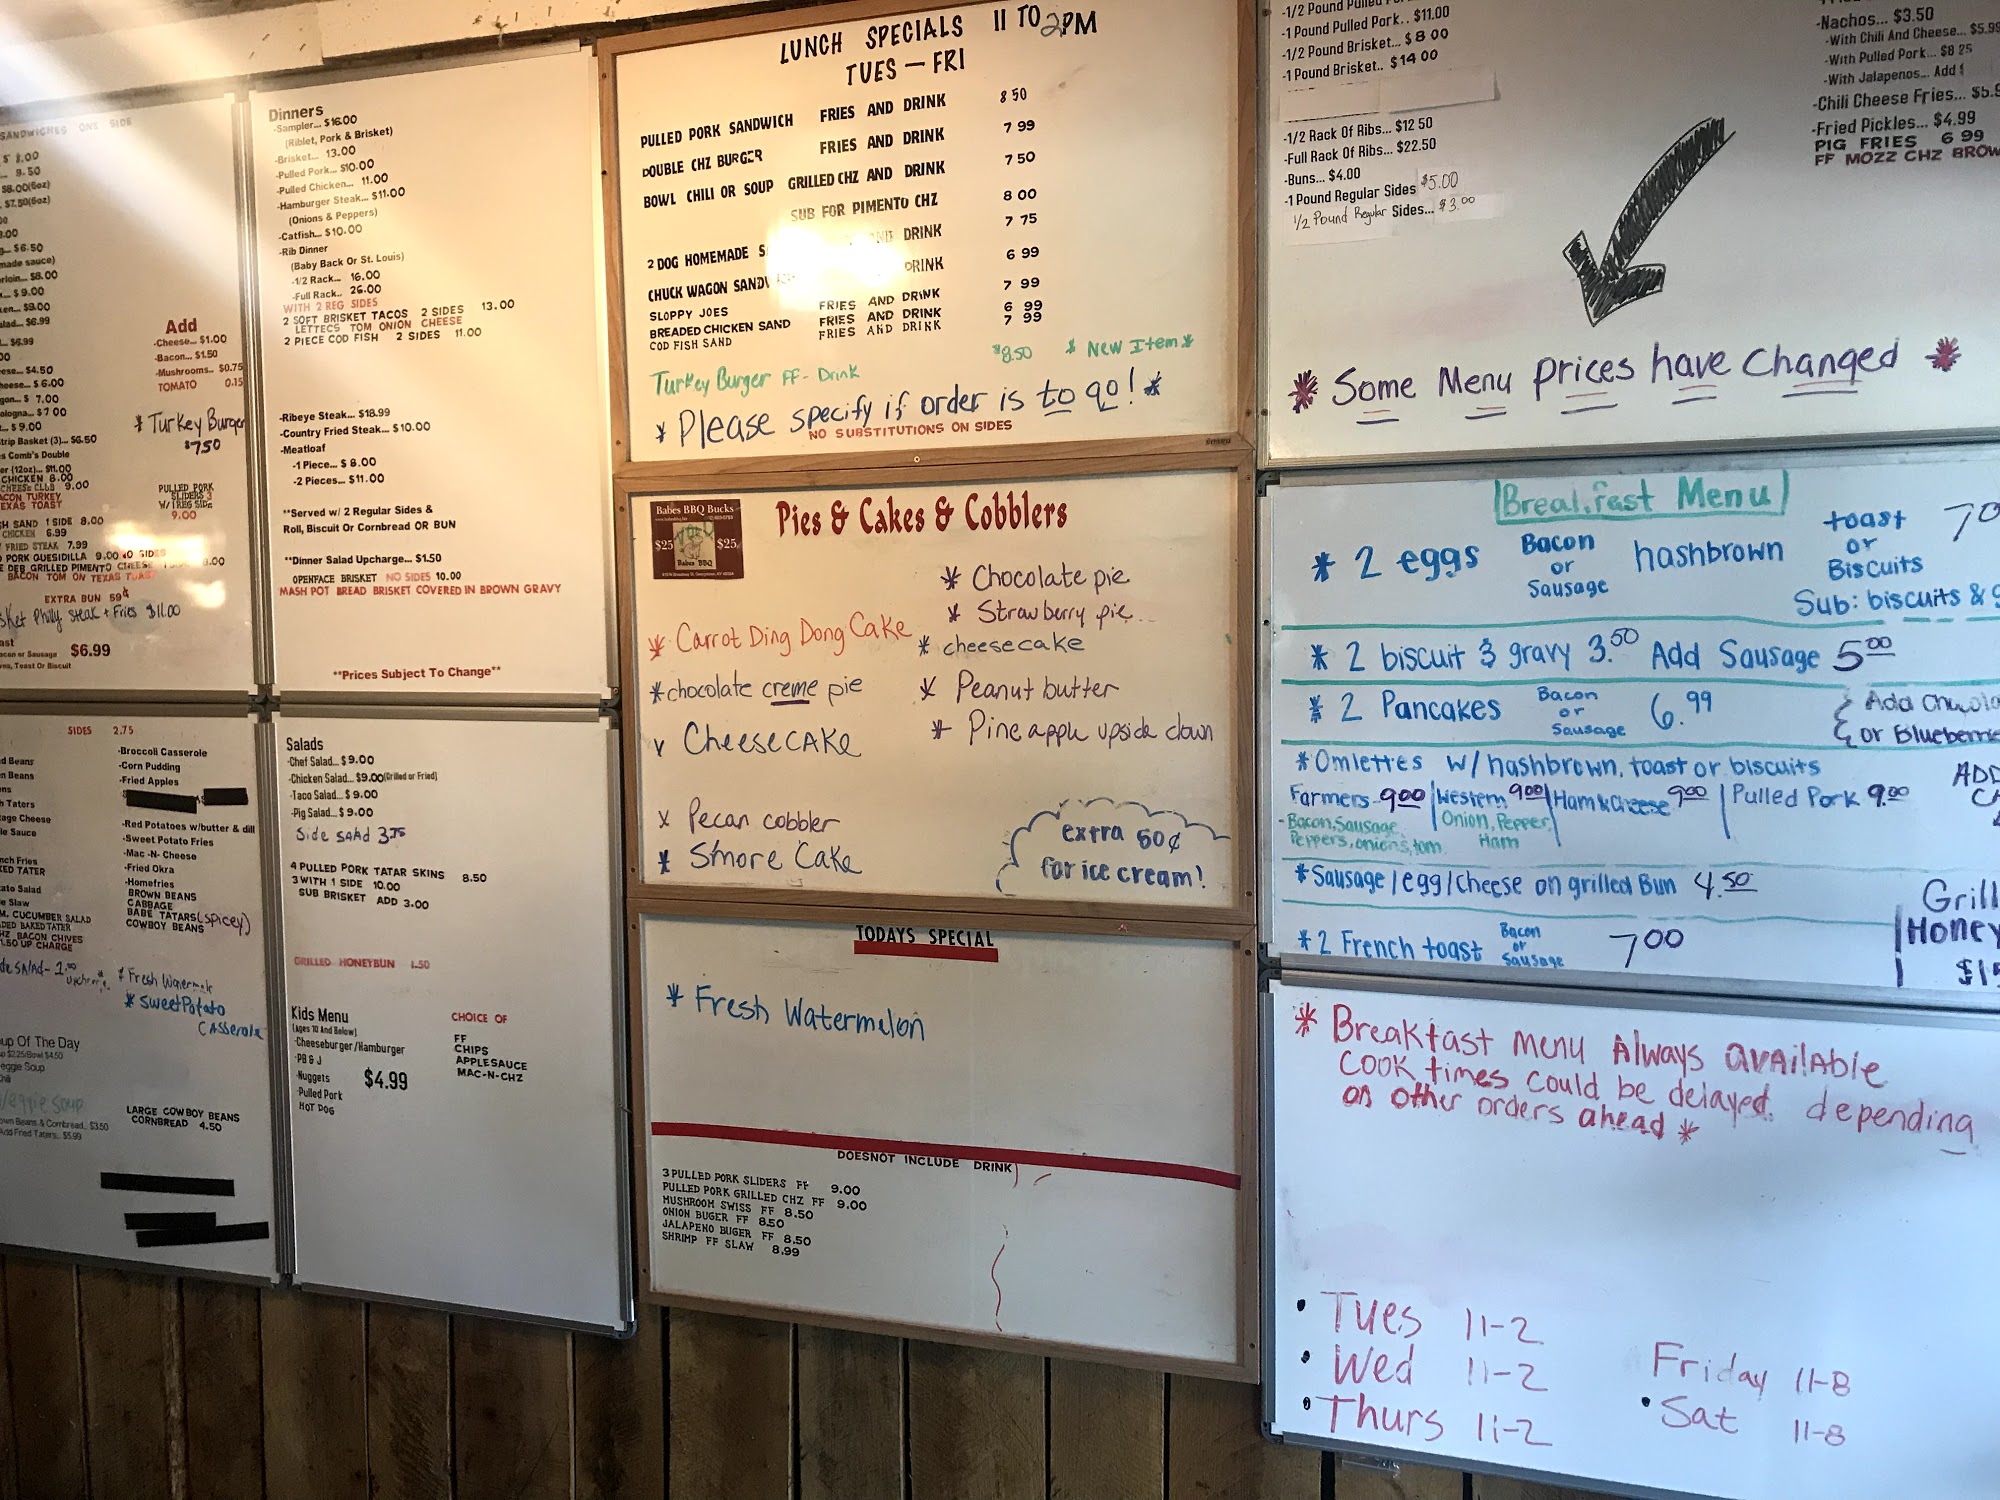 SANDWICHES ONE SIDE
$ 8.00
9.50
$8.00(6oz)
$7.50(6oz)
$6.50
made sauce)
$8.00
$9.00
$9.00
$6.99
$6.99
$4.50
$6.00
$ 7.00
$7 00
$ 9.00
Strip Basket (3)... $6.50
Comb's Double
(12oz)... $11.00
CHICKEN 8.00
CHEESE CLUB 9.00
BACON TURKEY
TEXAS TOAST
SAND 1 SIDE 8.00
CHICKEN 6.99
FRIED STEAK 7.99
PORK QUESIDILLA 9.00 NO SIDES
DEB GRILLED PIMENTO CHEESE 9.00
BACON TOM ON TEXAS TOAST
EXTRA BUN 59¢
Philly Steak + Fries $11.00
Bacon or Sausage $6.99
Toast Or Biscuit
Add
-Cheese... $1.00
-Bacon... $1.50
-Mushrooms.. $0.75
TOMATO 0.15
* Turkey Burger
$7.50
PULLED PORK
SLIDERS 3
W/1 REG SIDE
9.00
Dinners
-Sampler... $16.00
(Riblet, Pork & Brisket)
-Brisket... 13.00
-Pulled Pork... $10.00
-Pulled Chicken... 11.00
-Hamburger Steak... $11.00
(Onions & Peppers)
-Catfish... $10.00
-Rib Dinner
(Baby Back Or St. Louis)
-1/2 Rack... 16.00
-Full Rack.. 26.00
WITH 2 REG SIDES
2 SOFT BRISKET TACOS 2 SIDES 13.00
LETTECS TOM ONION CHEESE
2 PIECE COD FISH 2 SIDES 11.00
-Ribeye Steak... $18.99
-Country Fried Steak... $10.00
-Meatloaf
-1 Piece... $ 8.00
-2 Pieces... $11.00
**Served w/ 2 Regular Sides &
Roll, Biscuit Or Cornbread OR BUN
**Dinner Salad Upcharge... $1.50
OPENFACE BRISKET NO SIDES 10.00
MASH POT BREAD BRISKET COVERED IN BROWN GRAVY
**Prices Subject To Change**
LUNCH SPECIALS 11 TO 2PM
TUES — FRI
PULLED PORK SANDWICH FRIES AND DRINK 8 50
DOUBLE CHZ BURGER FRIES AND DRINK 7 99
BOWL CHILI OR SOUP GRILLED CHZ AND DRINK 7 50
SUB FOR PIMENTO CHZ 8 00
2 DOG HOMEMADE AND DRINK 7 75
CHUCK WAGON SAND DRINK 6 99
SLOPPY JOES FRIES AND DRINK 7 99
BREADED CHICKEN SAND FRIES AND DRINK 6 99
COD FISH SAND FRIES AND DRINK 7 99
Turkey Burger FF - Drink $8.50 * New Item *
* Please specify if order is to go! *
NO SUBSTITUTIONS ON SIDES
-1/2 Pound Pulled
-1 Pound Pulled Pork.. $11.00
-1/2 Pound Brisket... $ 8 00
-1 Pound Brisket.. $14 00
-1/2 Rack Of Ribs... $12 50
-Full Rack Of Ribs... $22.50
-Buns... $4.00
-1 Pound Regular Sides $5.00
1/2 Pound Regular Sides... $3.00
-Nachos... $3.50
-With Chili And Cheese... $5.99
-With Pulled Pork... $8 25
-With Jalapenos... Add
-Chili Cheese Fries...
-Fried Pickles... $4.99
PIG FRIES 6 99
FF MOZZ CHZ BROW
* Some Menu prices have changed *
Babes BBQ Bucks
$25 $25
Babes BBQ
Pies & Cakes & Cobblers
* Chocolate pie
* Strawberry pie
* Carrot Ding Dong Cake
* cheesecake
* chocolate creme pie
* Peanut butter
* Cheesecake
* Pineapple upside down
* Pecan cobbler
* S'more Cake
extra 50¢
for ice cream!
Breakfast Menu
* 2 eggs Bacon or Sausage hashbrown toast or Biscuits
Sub: biscuits &
* 2 biscuit & gravy 3.50 Add Sausage 5 00
* 2 Pancakes Bacon or Sausage 6.99
or Blueberrie
* Omlettes w/ hashbrown, toast or biscuits
Farmers-9 00 | Western 9 00 | Ham & Cheese 9 00 | Pulled Pork 9.00
- Bacon, Sausage, Peppers, onions, tom
Onion, Pepper, Ham
* Sausage / egg / Cheese on grilled Bun 4.50
* 2 French toast Bacon or Sausage 7 00
Grill
Honey
SIDES 2.75
-Broccoli Casserole
-Corn Pudding
-Fried Apples
-Red Potatoes w/butter & dill
-Sweet Potato Fries
-Mac -N- Cheese
-Fried Okra
-Homefries
BROWN BEANS
CABBAGE
BABE TATARS (spicey)
COWBOY BEANS
CUCUMBER SALAD
BAKED TATER
BACON CHIVES
1.50 UP CHARGE
* Fresh Watermeln
* Sweet Potato
Casserole
Soup Of The Day
$2.25/Bowl $4.50
Veggie Soup
Chili
Veggie soup
Brown Beans & Cornbread.. $3.50
Add Fried Taters.. $5.99
LARGE COWBOY BEANS
CORNBREAD 4.50
Salads
-Chef Salad... $ 9.00
-Chicken Salad... $9.00(Grilled or Fried)
-Taco Salad... $ 9.00
-Pig Salad... $ 9.00
Side Salad 3.75
4 PULLED PORK TATAR SKINS 8.50
3 WITH 1 SIDE 10.00
SUB BRISKET ADD 3.00
GRILLED HONEYBUN 1.50
Kids Menu
(Ages 10 And Below)
-Cheeseburger/Hamburger
-PB & J
-Nuggets $4.99
-Pulled Pork
HOT DOG
CHOICE OF
FF
CHIPS
APPLESAUCE
MAC-N-CHZ
TODAYS SPECIAL
* Fresh Watermelon
DOESNOT INCLUDE DRINK
3 PULLED PORK SLIDERS FF 9.00
PULLED PORK GRILLED CHZ FF 9.00
MUSHROOM SWISS FF 8.50
ONION BUGER FF 8.50
JALAPENO BUGER FF 8.50
SHRIMP FF SLAW 8.99
* Breakfast menu Always available
cook times could be delayed, depending
on other orders ahead *
• Tues 11-2
• Wed 11-2
• Thurs 11-2
Friday 11-8
• Sat 11-8